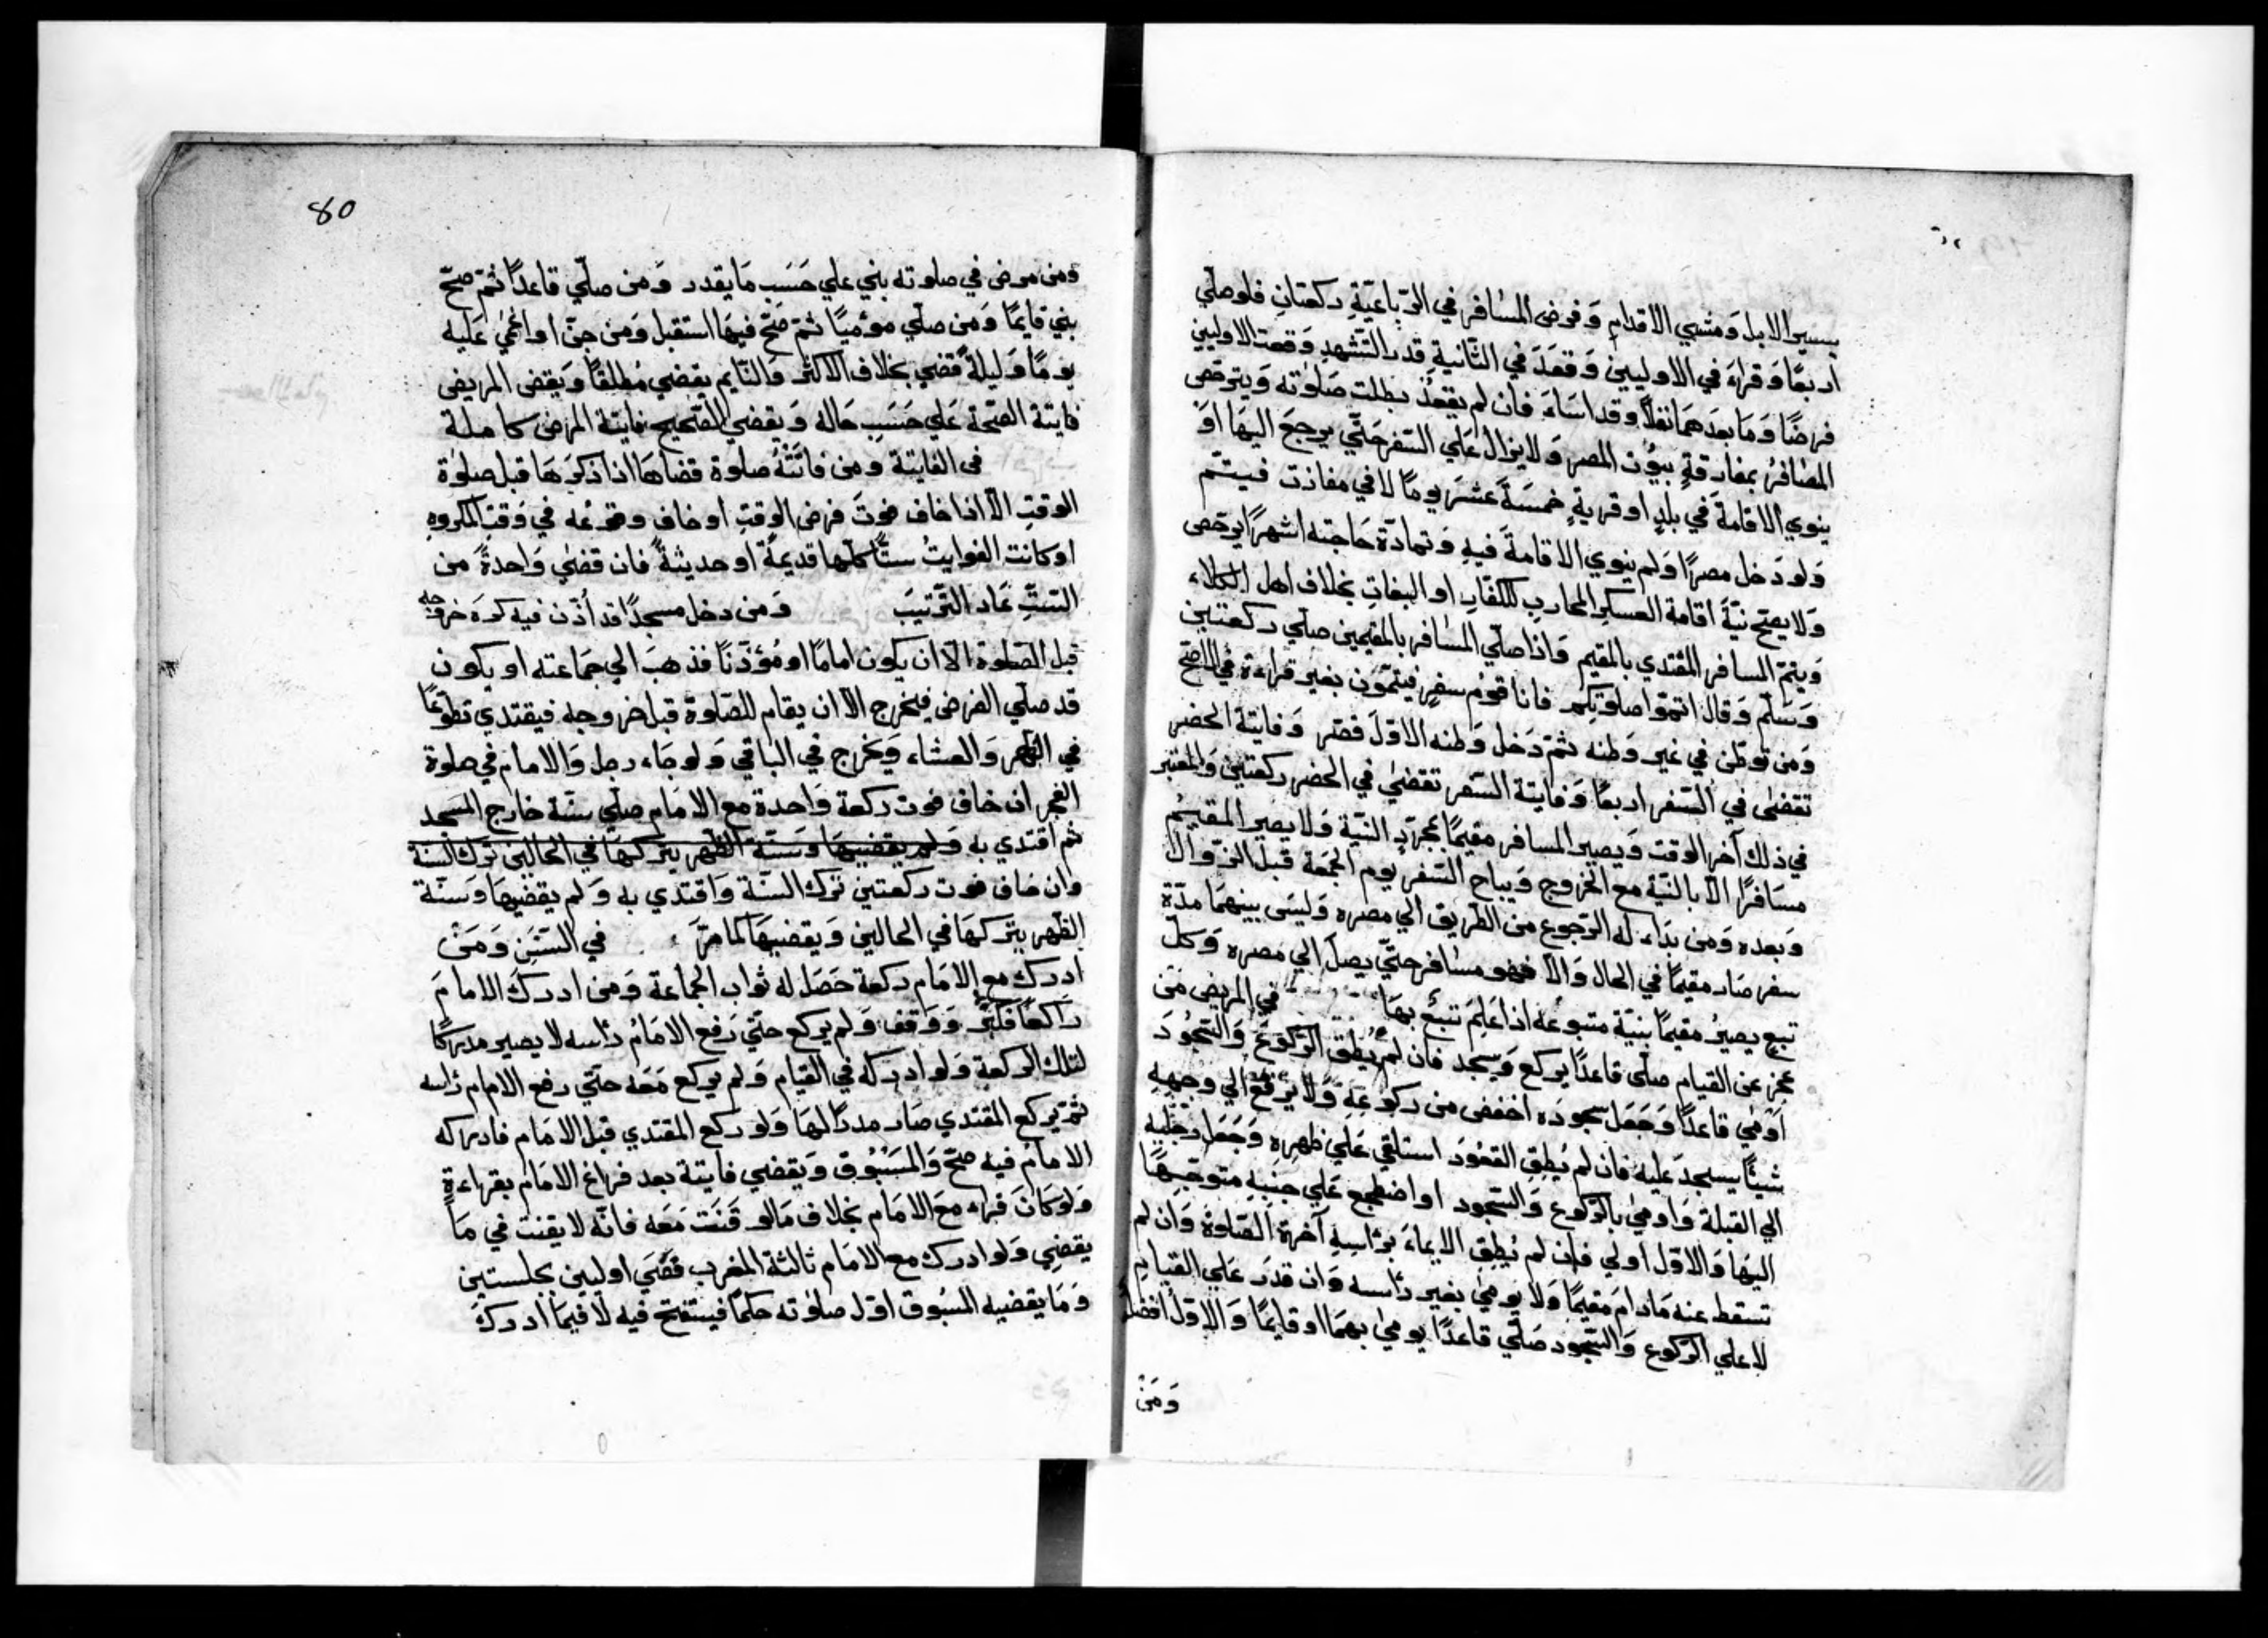 بسير الابل وَمشي الاقدام وَفرض المسَافر في الرّباعيّةِ ركعتانِ فلو صلّي
اربعًا وَقراءَ في الاوليين وَقعَدَ في الثّانيةِ قدر التّشهدِ وَقعت الاوليين
فرضًا وَمَا بعدَهمَا نفلاً وقد اسَاءَ فان لم يقعُدْ بطلت صَلوٰته وَيترخّص
المسَافرُ بمفارقةِ بيُوت المصر وَلا يزالُ عَلي السّفر حَتّي يرجعَ اليهَا اَوْ
ينوي الاقامةَ في بلدٍ او قريةٍ خمسَةَ عشرَ يومًا لا في مفازت فيتمّ
وَلو دَخل مصرًا وَلم ينوي الاقامةَ فيهِ وَتمادّة حَاجته اشهرًا يرخّص
وَلا يصحّ نيّةَ اقامة العسكر المحاربِ للكفّارِ او البغات بخلاف اهل الكلاء
وَيتمّ المسافر المقتدي بالمقيم وَاذا صلّي المسَافر بالمقيمين صلّي ركعتين
وَسَلّم وَقال اتمّوا صلوتكم فانا قومٌ سفرٍ فيتمّون بغير قراءة في الاصَح
وَمن توطّن في غير وَطنه ثمّ دَخل وَطنه الاوّل فقصر وَفايتة الحضر
تقضىٰ في السّفر اربعًا وَفايتة السّفر تقضىٰ في الحضر ركعتين وَالمعتبر
في ذلك آخر الوقت وَيصير المسافر مقيمًا بمجرّدِ النيّة وَلا يصير المقيمُ
مسَافرًا الاّ بالنيّة مع الخروج وَيباح السّفر يوم الجمَعة قبل الزّوال
وَبعده وَمن بدَاء له الرّجوع من الطّريق الي مصره وَليسَ بينهمَا مدّة
سفر صَار مقيمًا في الحال وَالاّ فهو مسَافر حتّي يصل الي مصره وَكلّ
تبعٍ يصيرُ مقيمًا بنيّة متبوعه اذا عَلمَ تبعٌ بهَا في المريض مَن
عجز عن القيام صلّي قاعدًا يركع وَيسجد فان لم يُطق الرّكوعَ وَالسّجُودَ
اَوْمي قاعدًا وَجَعَل سجُودَه اخفض من ركوعهِ وَلا يرفع الي وجههِ
شيئًا يسجد عليه فان لم يُطِق القعُودَ استلقي عَلي ظهره وَجَعَل رجْليه
الي القبلة وَاومي بالرّكوع وَالسّجود او اضطجع عَلي جنبه متوجّهًا
اليهَا وَالاوّل اولي فان لم يُطِق الايماءَ براسِهِ آخرة الصّلوة وَان لم
تسقط عنه مَادامَ مقيمًا وَلا يومِي بغير راسه وَان قدَر عَلي القيامِ
لا علي الرّكوع وَالسّجود صَلّي قاعدًا يومئ بهمَا او قايمًا وَالاوّل افضل
وَمَنْ
80
وَمن مرض في صلوته بني علي حَسَبِ مَا يقدر وَمن صلّي قاعدًا ثمّ صحّ
بني قايمًا وَمن صلّي مؤميًا ثمّ صَحّ فيهَا استقبل وَمن جنّ او اغمي عَليه
يومًا وَليلةً قضي بخلاف الاكثر وَالنّايم يقضي مُطلقًا وَيقضي المريض
فايتة الصّحة عَلي حَسَبِ حَاله وَيقضي الصّحيح فايتة المرض كاملة
في الفايتة ومن فاتتْهُ صلوة قضاهَا اذا ذكرَهَا قبل صلوة
الوقتِ الاّ اذا خاف فوتَ فرض الوقتِ او خاف وقوعُه في وَقتِ المكروهِ
او كانت الفوايتُ ستًّا كلّها قديمةً او حديثةً فان قضىٰ وَاحدةً من
الستِّ عَاد التّرتيبَ وَمن دخل مسجدًا قد أذّن فيه كرهَ خروجه
قبل الصّلوة الاّ ان يكون امامًا او مُؤذّنًا فذهبَ الي جمَاعته او يكون
قد صلّي الفرض فيخرج الاّ ان يقام للصّلوة قبل خروجه فيقتدي تطوّعًا
في الظّهر وَالعشاء وَيخرج في الباقي وَلو جَاء رجل وَالامام في صلوة
الفجر ان خاف فوت ركعة وَاحدة مع الامَام صلّي سنّة خارج المسَجد
ثم اقتدي به وَلم يقضيهَا وَسَنّة الظّهر يتركهَا في الحالين ترك السّنة
وان خاف فوت ركعتين ترك السنّة وَاقتدي به وَلم يقضيهَا وَسنّة
الظّهر يتركهَا في الحالين وَيقضيهَا كما مرّ في السّنَنِ وَمَنْ
ادرك مع الامَام ركعة حَصَل له ثواب الجمَاعة وَمَن ادركَ الامامَ
رَاكعًا فكبّر وَوَقف وَلم يركع حتّي رَفع الامَامُ رَاسه لا يصير مدركًا
لتلك الركعة وَلو ادركه في القيام وَلم يركع مَعَه حتّي رفع الامام رَاسه
ثمّ يركع المقتدي صَار مدركًا لهَا وَلو ركع المقتدي قبل الامَام فادركه
الامَامُ فيه صحّ وَالمسْبُوق وَيقضي فايتة بعد فراغ الامَام بقراءةٍ
وَلو كَانَ قراء معَ الامَام بخلاف مَالو قنَت مَعَه فانّه لا يقنت في مَا
يقضي وَلو ادرك مع الامَام ثالثة المغرب قضَي اوليين بجلستين
وَمَا يقضيه المسبُوق اوّل صلوٰته حكمًا فيستفتح فيه لا فيمَا ادركَ